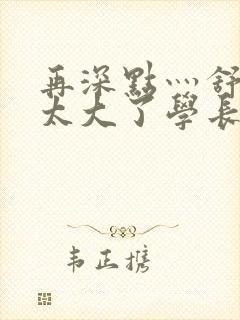 再深點灬舒
太大了學長
韦正携